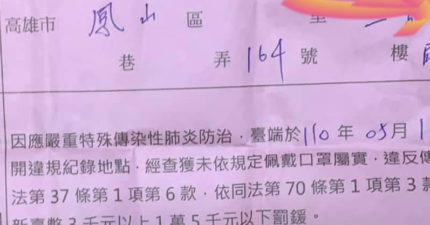 高雄市 鳳山 區
巷 弄 164 號 樓
因應嚴重特殊傳染性肺炎防治，臺端於 110 年 05 月 1
開違規紀錄地點，經查獲未依規定佩戴口罩屬實，違反傳
法第 37 條第 1 項第 6 款，依同法第 70 條第 1 項第 3 款
新臺幣 3 千元以上 1 萬 5 千元以下罰鍰。